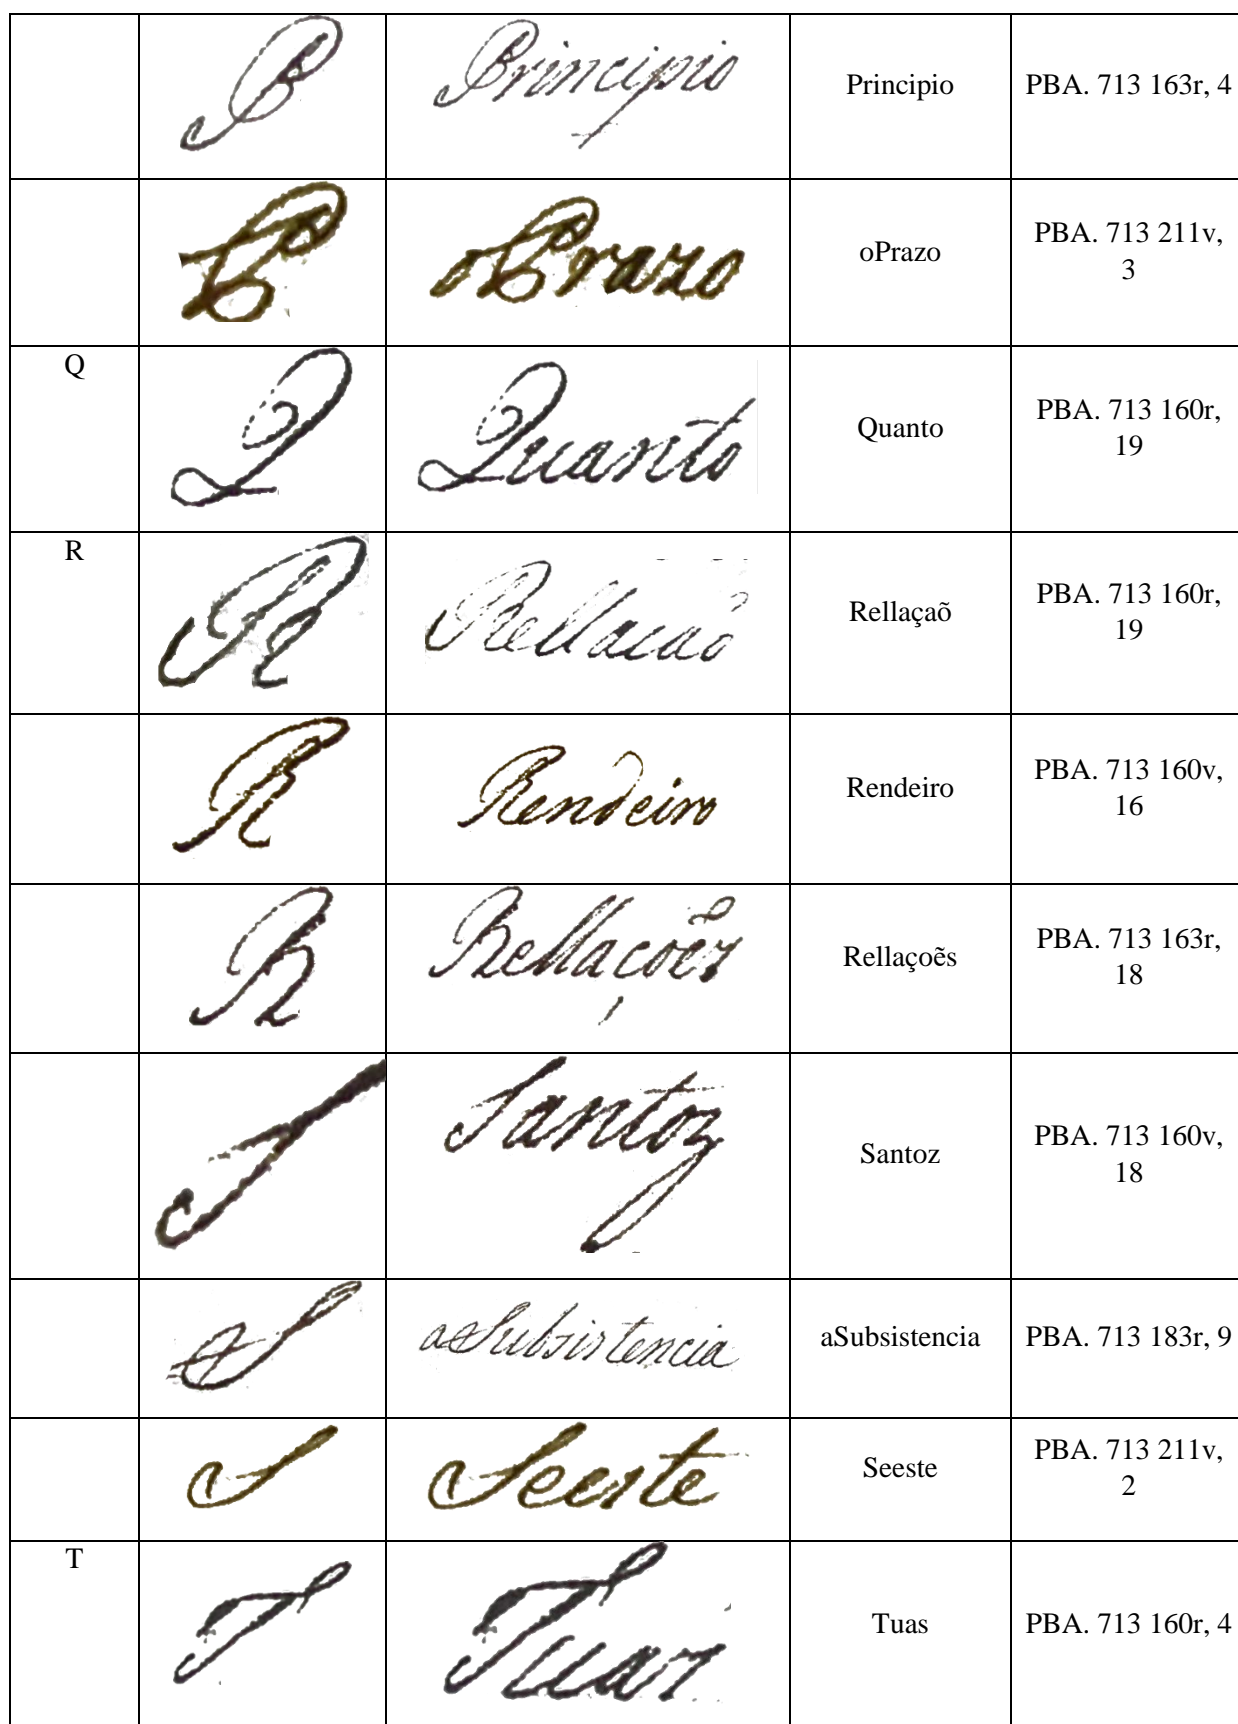 P Principio Principio PBA. 713 163r, 4
P oPrazo oPrazo PBA. 713 211v,
3
Q Q Quanto Quanto PBA. 713 160r,
19
R R Rellaçaõ Rellaçaõ PBA. 713 160r,
19
R Rendeiro Rendeiro PBA. 713 160v,
16
R Rellaçoẽs Rellaçoẽs PBA. 713 163r,
18
S Santoz Santoz PBA. 713 160v,
18
S aSubsistencia aSubsistencia PBA. 713 183r, 9
S Seeste Seeste PBA. 713 211v,
2
T T Tuas Tuas PBA. 713 160r, 4